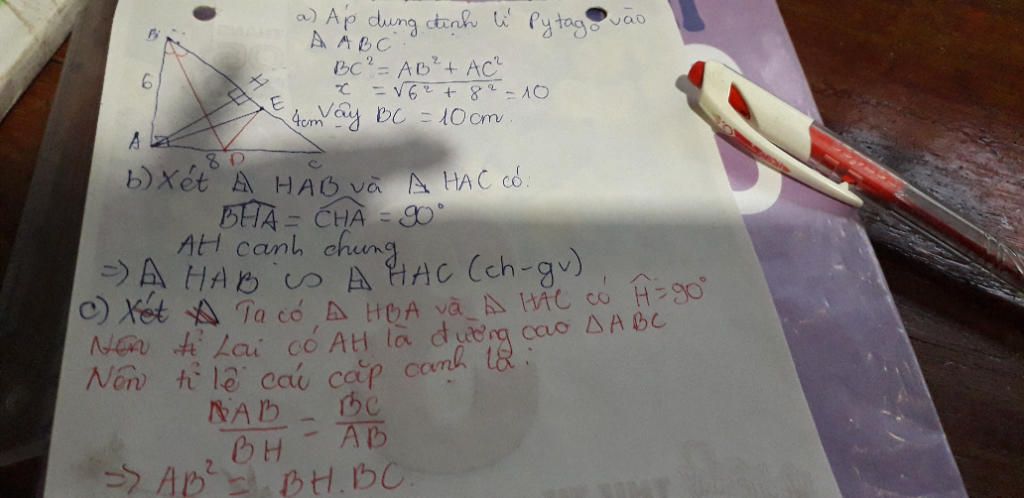 a) Áp dụng định lí Pytago vào
∆ ABC
BC² = AB² + AC²
x = √6² + 8² = 10
Vậy BC = 10cm.
B
6
H
E
4cm
A
8
D
C
b) Xét ∆ HAB và ∆ HAC có:
BHA = CHA = 90°
AH cạnh chung
=> ∆ HAB ∽ ∆ HAC (ch-gv)
c) Xét ∆ Ta có ∆ HBA và ∆ HAC có Ĥ = 90°
Nên tỉ Lai có AH là đường cao ∆ABC
Nên tỉ lệ các cặp cạnh là:
AB / BH = BC / AB
=> AB² = BH.BC.